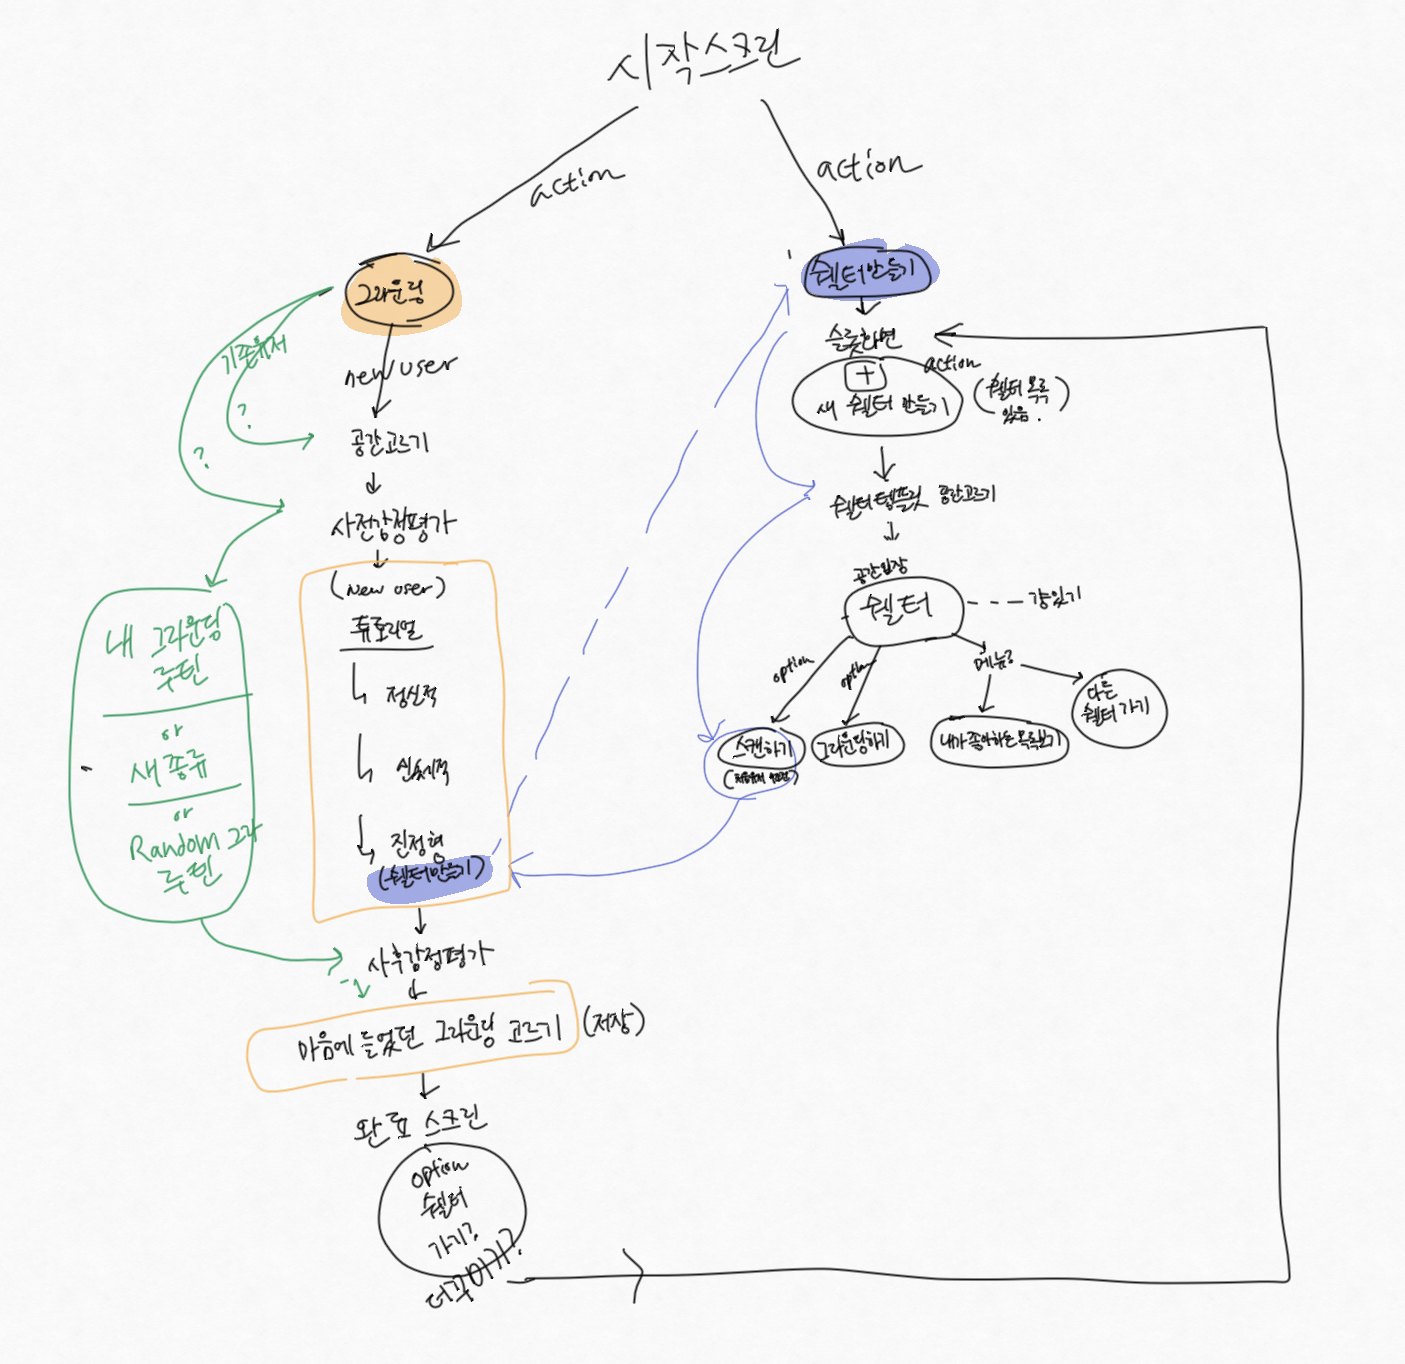 시작스크린
action
action
그라운딩
쉘터만들기
기존유저
?
?
new user
공간고르기
사전감정평가
(New user)
튜토리얼
정신적
신체적
진정형
(쉘터만들기)
내 그라운딩
루틴
or
새 종류
or
Random 그라
루틴
사후감정평가
마음에 들었던 그라운딩 고르기 (저장)
완료 스크린
option
쉘터
가기?
더꾸미기?
슬롯화면
+
action
새 쉘터 만들기
(쉘터 목록
있음.)
쉘터템플릿 공간고르기
공간입장
쉘터
걍있기
option
option
메뉴로
스캔하기
그라운딩하기
내가좋아하는목록보기
다른
쉘터 가기